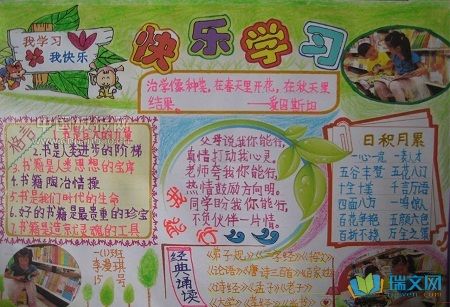 我学习
我快乐
快乐学习
治学像种菜，在春天里开花，在秋天里
结果。 ——爱因斯坦
格言
2.书是人类进步的阶梯
3.书籍是人类思想的宝库
4.书籍陶冶情操
5.书是我们时代的生命
6.好的书籍是最贵重的珍宝
7.书籍是造就灵魂的工具
父母说我你能行，
真情打动我心灵。
老师夸我你能行，
热情鼓励方向明。
同学盼我你能行，
不负伙伴一片情。
日积月累
一心一意 一表人才
五谷丰登 五花八门
十全十美 千言万语
四面八方 一鸣惊人
百花争艳 五颜六色
百折不挠 万全之策
一(1)班
15号
经典诵读
《弟子规》《三字经》
《论语》《唐诗三百首》
《诗经》《孟子》《老子》
《大学》
瑞文网